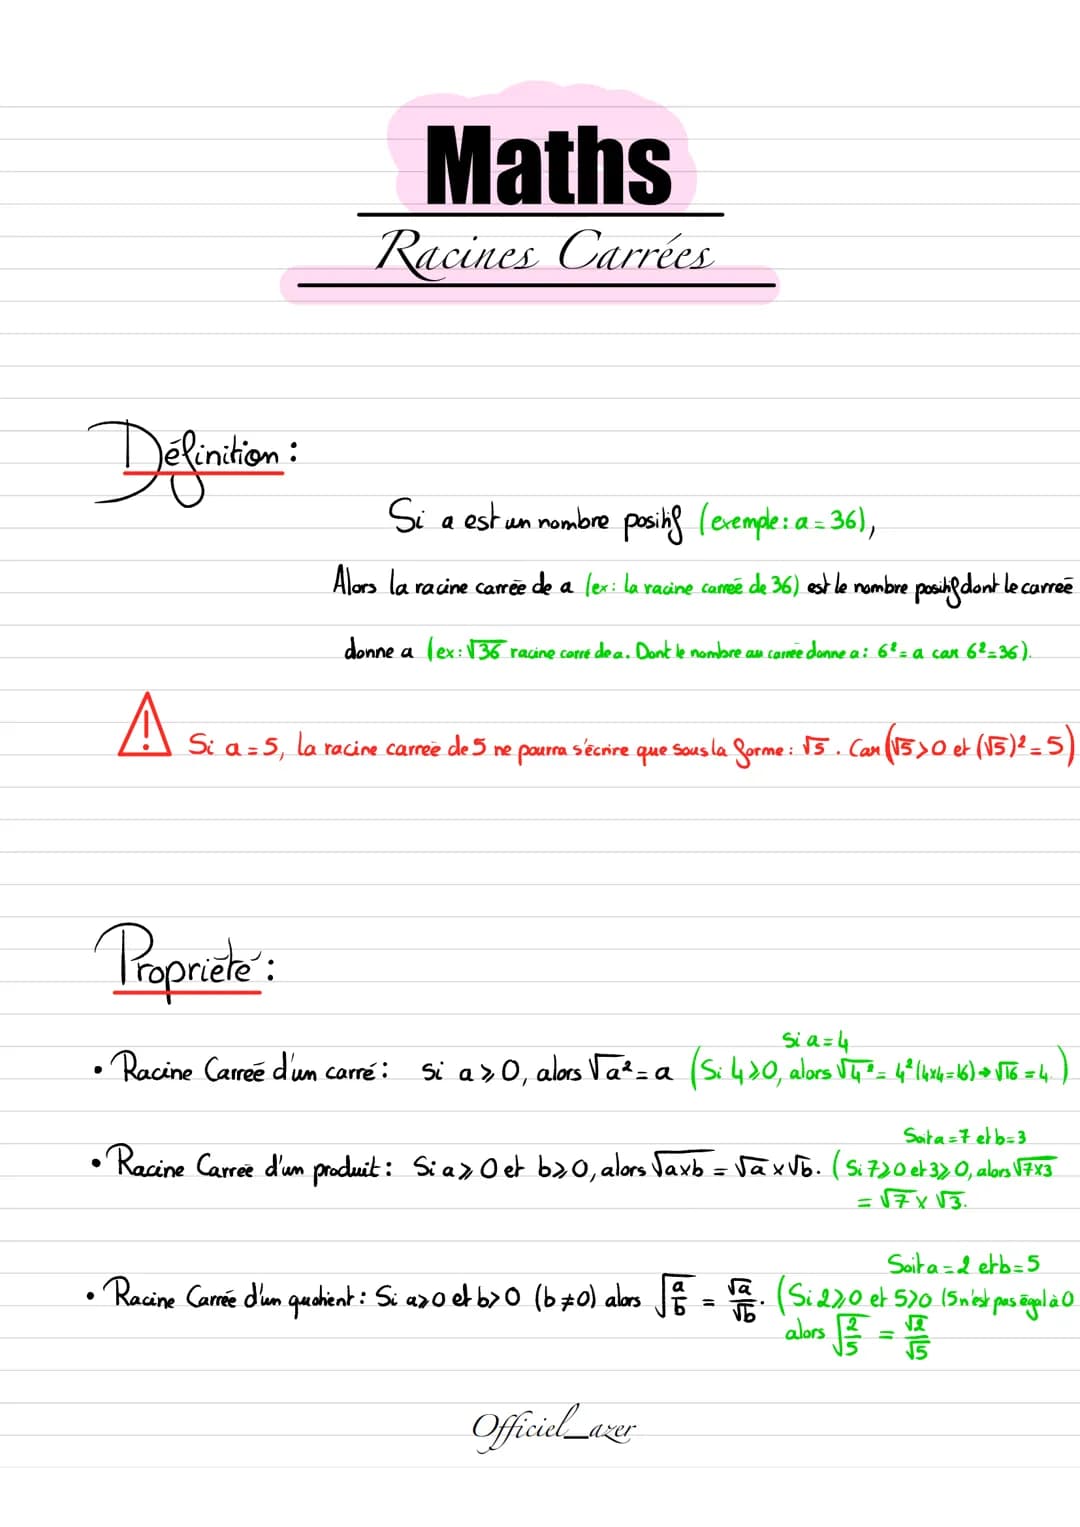 Maths
Racines Carrées
Définition :
Si a est un nombre positif (exemple : a = 36),
Alors la racine carrée de a (ex : la racine carrée de 36) est le nombre positif dont le carreé
donne a (ex : √36 racine carré de a. Dont le nombre au carrée donne a : 6² = a car 6² = 36).
Si a = 5, la racine carreé de 5 ne pourra s'écrire que sous la forme : √5. Car (√5 > 0 et (√5)² = 5)
Proprieté :
Si a = 4
• Racine Carreé d'un carré : Si a ⩾ 0, alors √a² = a (Si 4 ⩾ 0, alors √4² = 4² (4x4=16) → √16 = 4.)
Soit a = 7 et b = 3
• Racine Carreé d'un produit : Si a ⩾ 0 et b ⩾ 0, alors √axb = √a x √b. (Si 7 ⩾ 0 et 3 ⩾ 0, alors √7x3
= √7 x √3.
Soit a = 2 et b = 5
• Racine Carrée d'un quotient : Si a ⩾ 0 et b > 0 (b ≠ 0) alors √(a/b) = √a/√b. (Si 2 ⩾ 0 et 5 > 0 (5 n'est pas égal à 0
alors √(2/5) = √2/√5
Officiel_azer